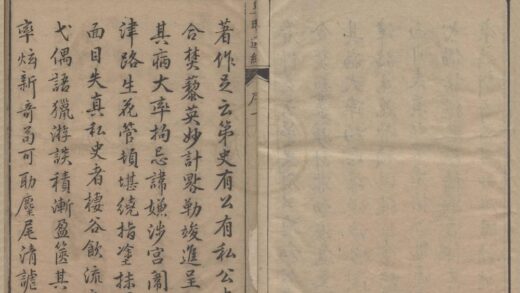 明通紀 序一
著作足云第史有公有私公
合樊藜英妙計畧勒竣進呈
其病大率拘忌諱嫌涉宮闈
津路生花管頓堪繞指塗抹
面目失真私史者棲谷飲流
弋偶語獵游談積漸盈篋其
率炫新奇苟可助麈尾清謔